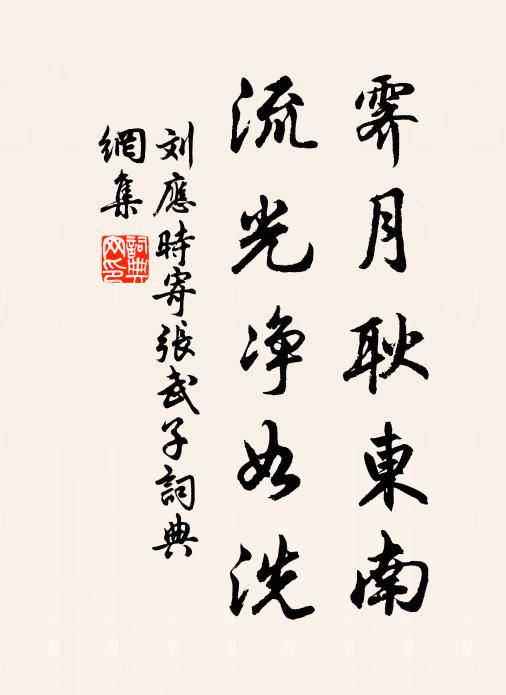 霽月耿東南
流光净如洗
刘應時寄張武子詞典
網集
詞典
网印